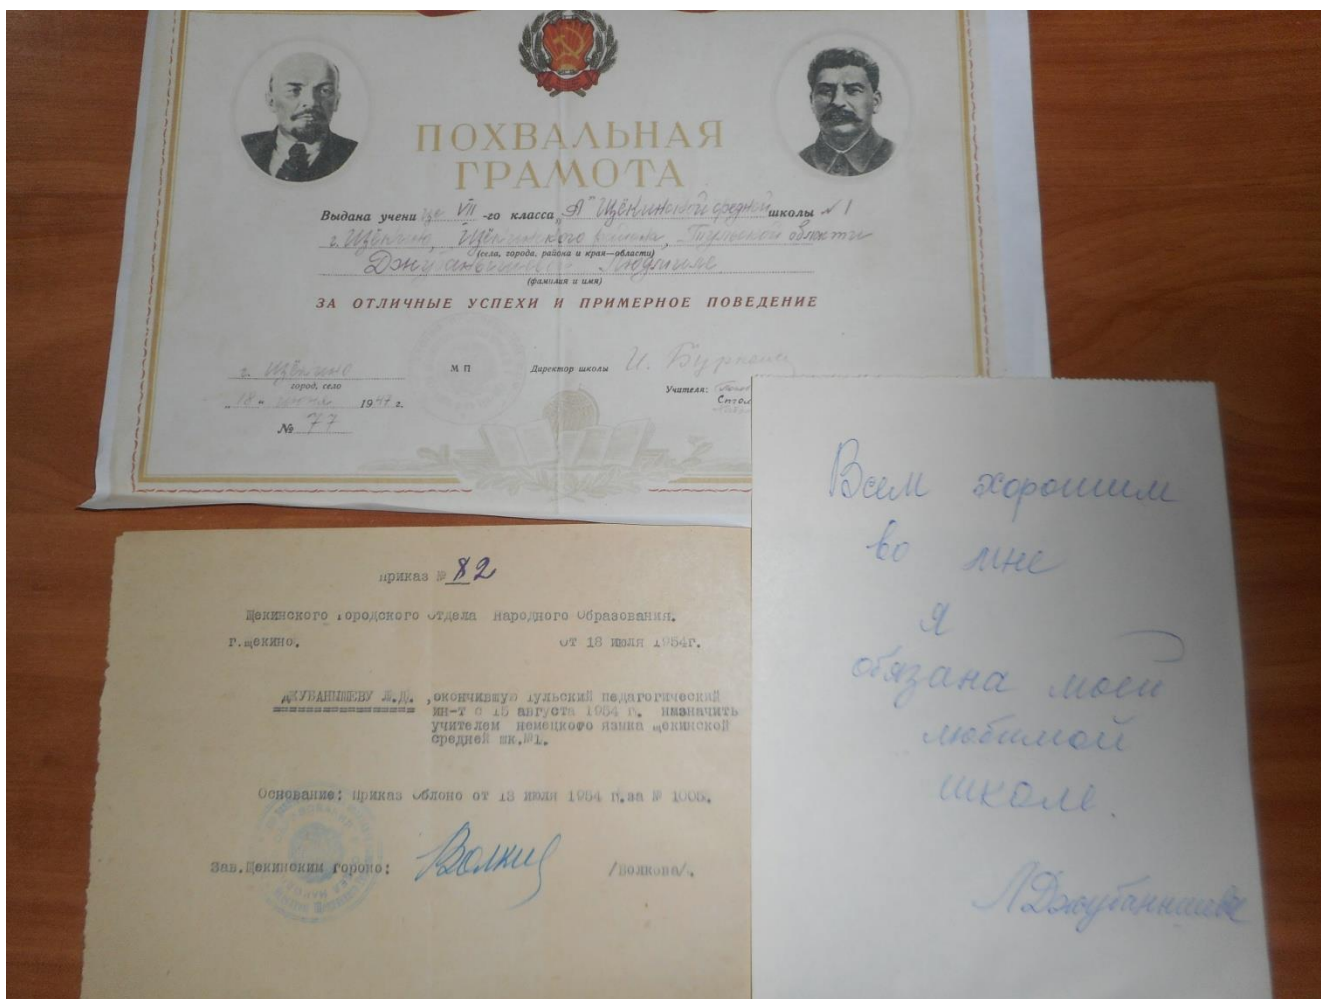 ПОХВАЛЬНАЯ
ГРАМОТА
Выдана учени це VII -го класса „А" Щёкинской средней школы №1
г. Щёкино, Щёкинского района, Тульской области
(села, города, района и края—области)
Людмиле
(фамилия и имя)
ЗА ОТЛИЧНЫЕ УСПЕХИ И ПРИМЕРНОЕ ПОВЕДЕНИЕ
г. Щёкино
город, село
М П
Директор школы И.
Учителя:
„18" 1947 г.
№ 77
Приказ № 82
Щекинского Городского Отдела Народного Образования.
г.Щекино. От 18 июля 1954г.
ДЖУБАНЫШЕВУ Л.Д. ,окончившую Тульский педагогический
ин-т с 15 августа 1954 г. назначить
учителем немецкого языка Щекинской
средней шк.№1.
Основание: Приказ Облоно от 13 июля 1954 г.за № 1005.
Зав.Щекинским гороно: /Волкова/.
Всем хорошим
во мне
я
обязана моей
любимой
школе.